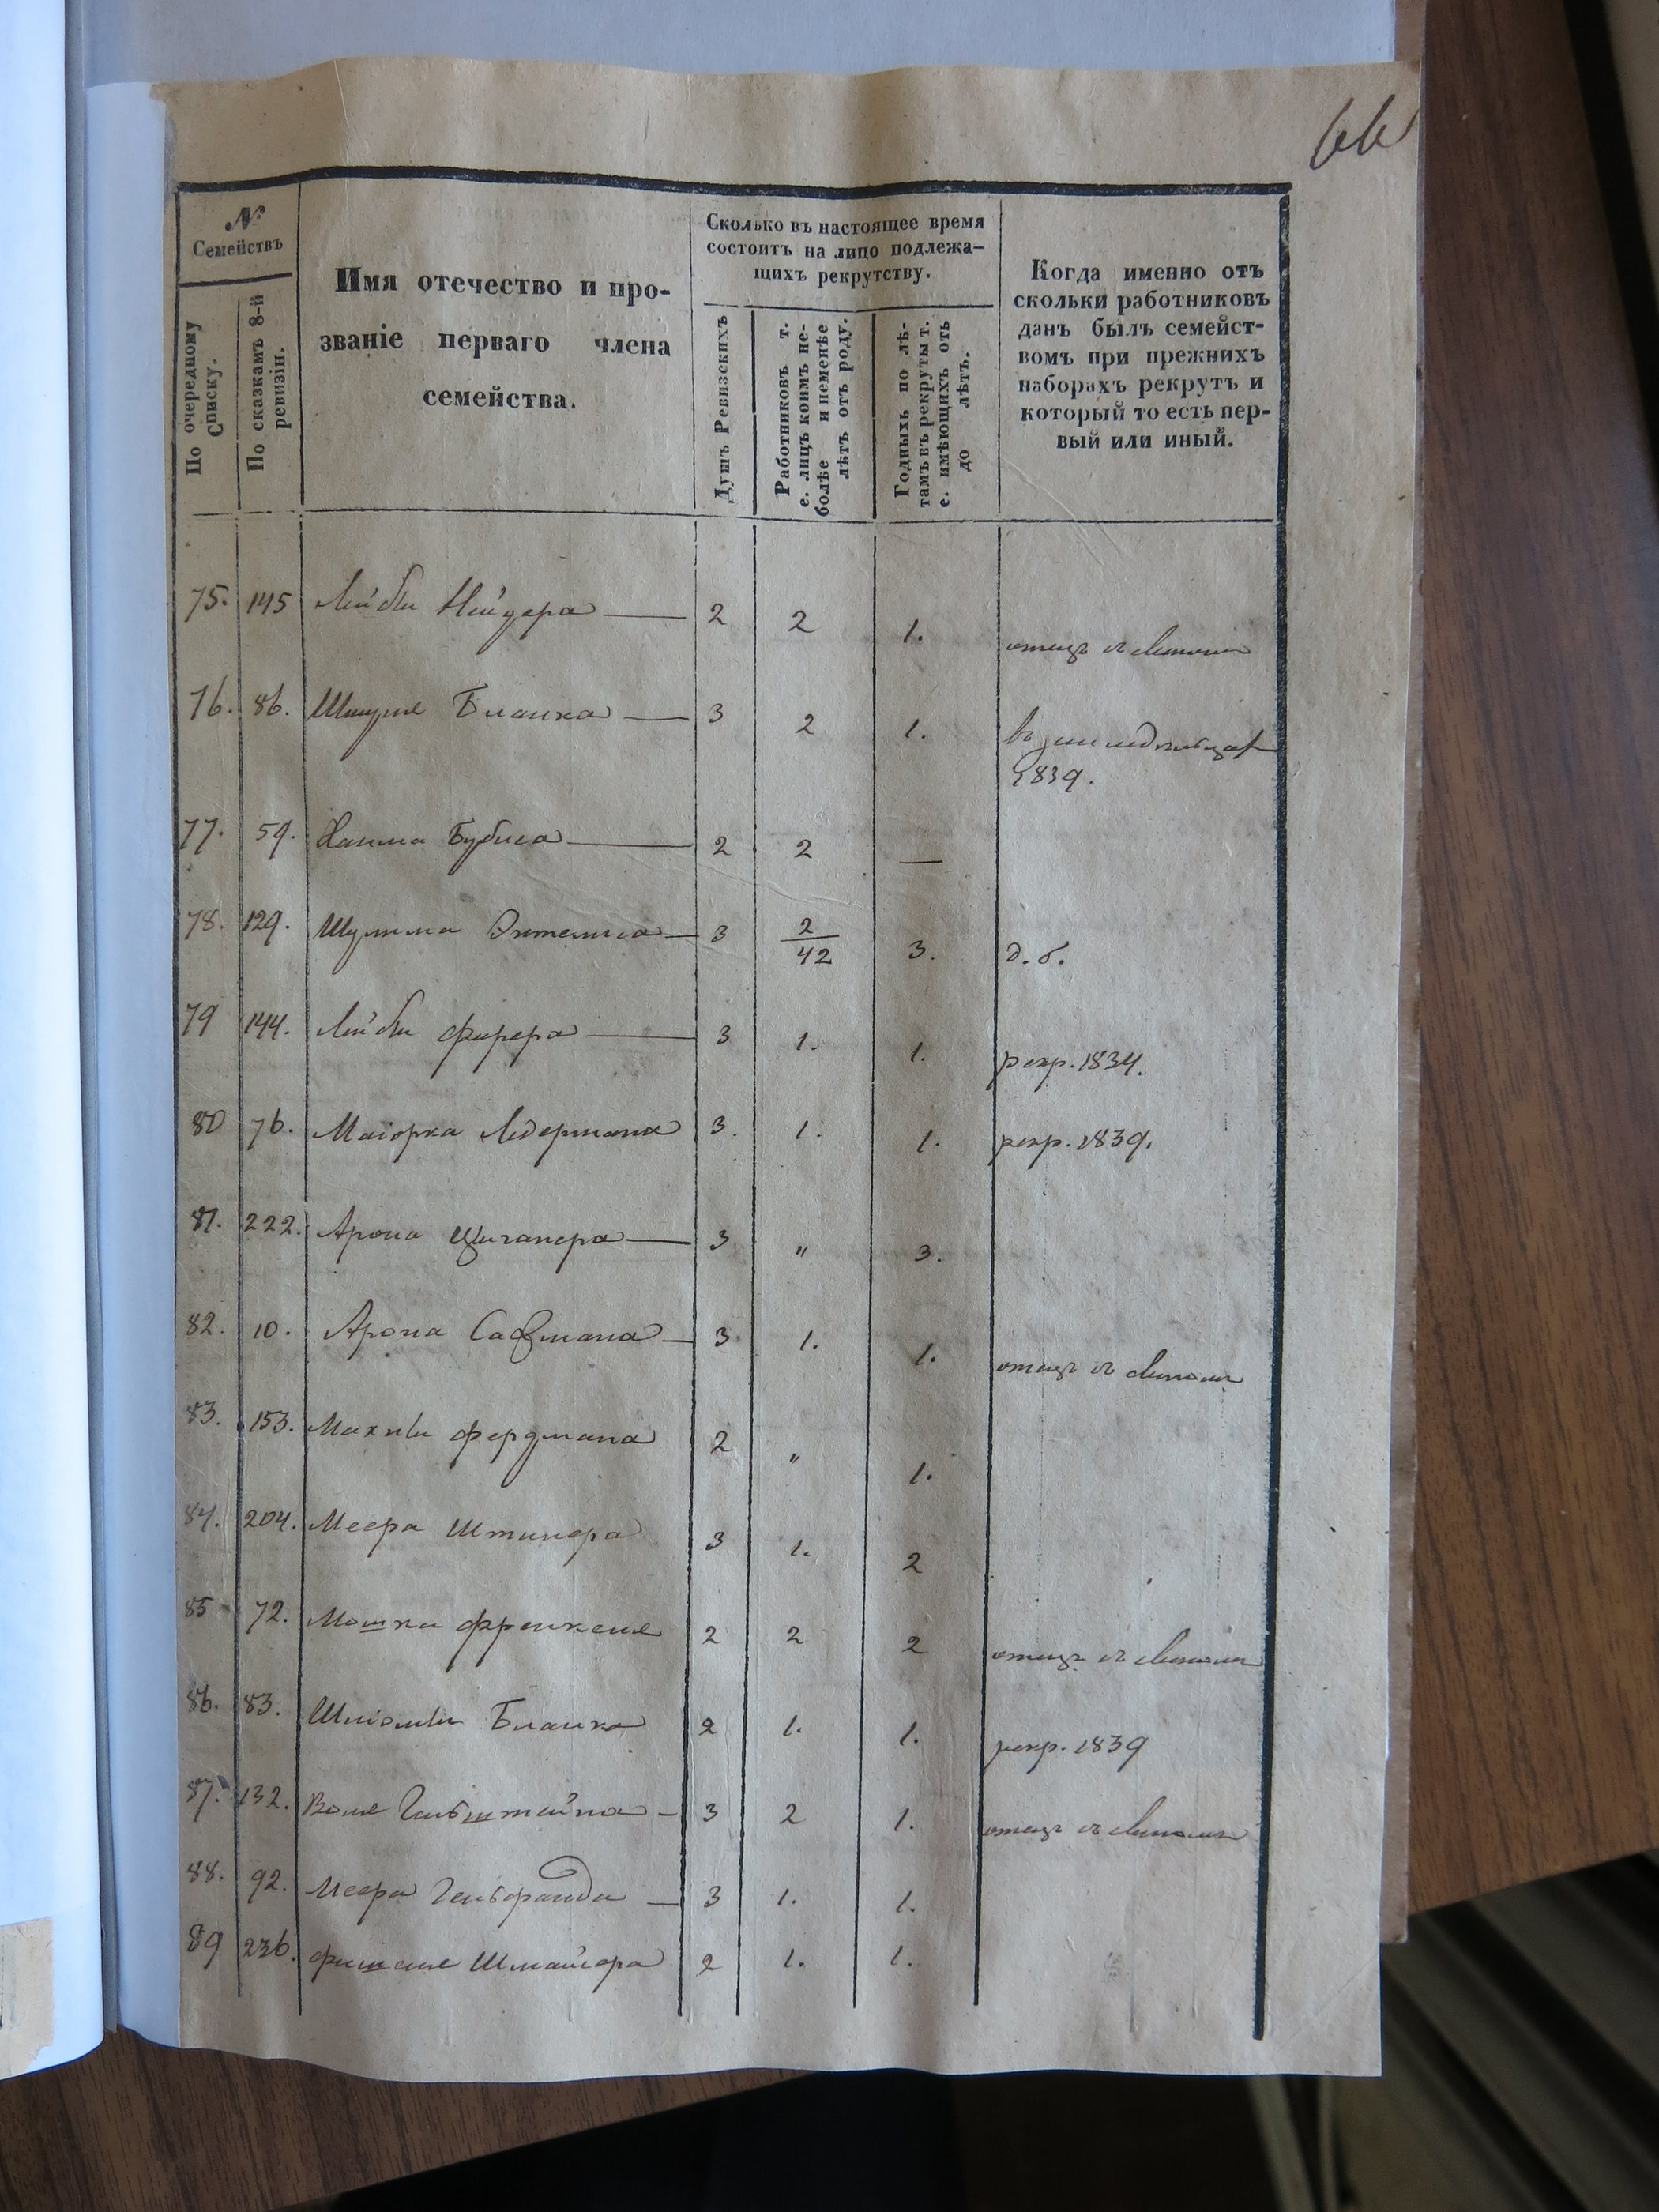 66
№
Семействъ
По очередному Списку.
По сказкамъ 8-й ревизіи.
Имя отечество и про-
званіе перваго члена
семейства.
Сколько въ настоящее время
состоитъ на лицо подлежа-
щихъ рекрутству.
Душъ Ревизскихъ
Работниковъ т.
е. лицъ коимъ не-
болѣе и неменѣе
лѣтъ отъ роду.
Годныхъ по лѣ-
тамъ въ рекруты т.
е. имѣющихъ отъ
до лѣтъ.
Когда именно отъ
скольки работниковъ
данъ былъ семейст-
вомъ при прежнихъ
наборахъ рекрутъ и
который то есть пер-
вый или иный.
75. 145 Лейбы Нейдера 2 2 1. отецъ
76. 86. Шмуля Бланка 3 2 1. въ
1839.
77. 59. Хаима Бубиса 2 2 —
78. 129. Шулима 3 2/42 3. д. б.
79 144. Лейбы Фирера 3 1. 1. рекр. 1834.
80 76. Маіорка Ледермана 3. 1. 1. рекр. 1839.
81. 222. Арона Циганера 3 " 3.
82. 10. Арона Сафмана 3 1. 1. отецъ
83. 153. Махли Фердмана 2 " 1.
84. 204. Меера Штинера 3 1. 2
85 72. Мошки Френкеля 2 2 2 отецъ
86. 83. Шліомы Бланка 2 1. 1. рекр. 1839
87. 132. Воля Гольштейна 3 2 1. отецъ
88. 92. Меера Гельбранда 3 1. 1.
89 236. Фишеля Шмаиера 2 1. 1.